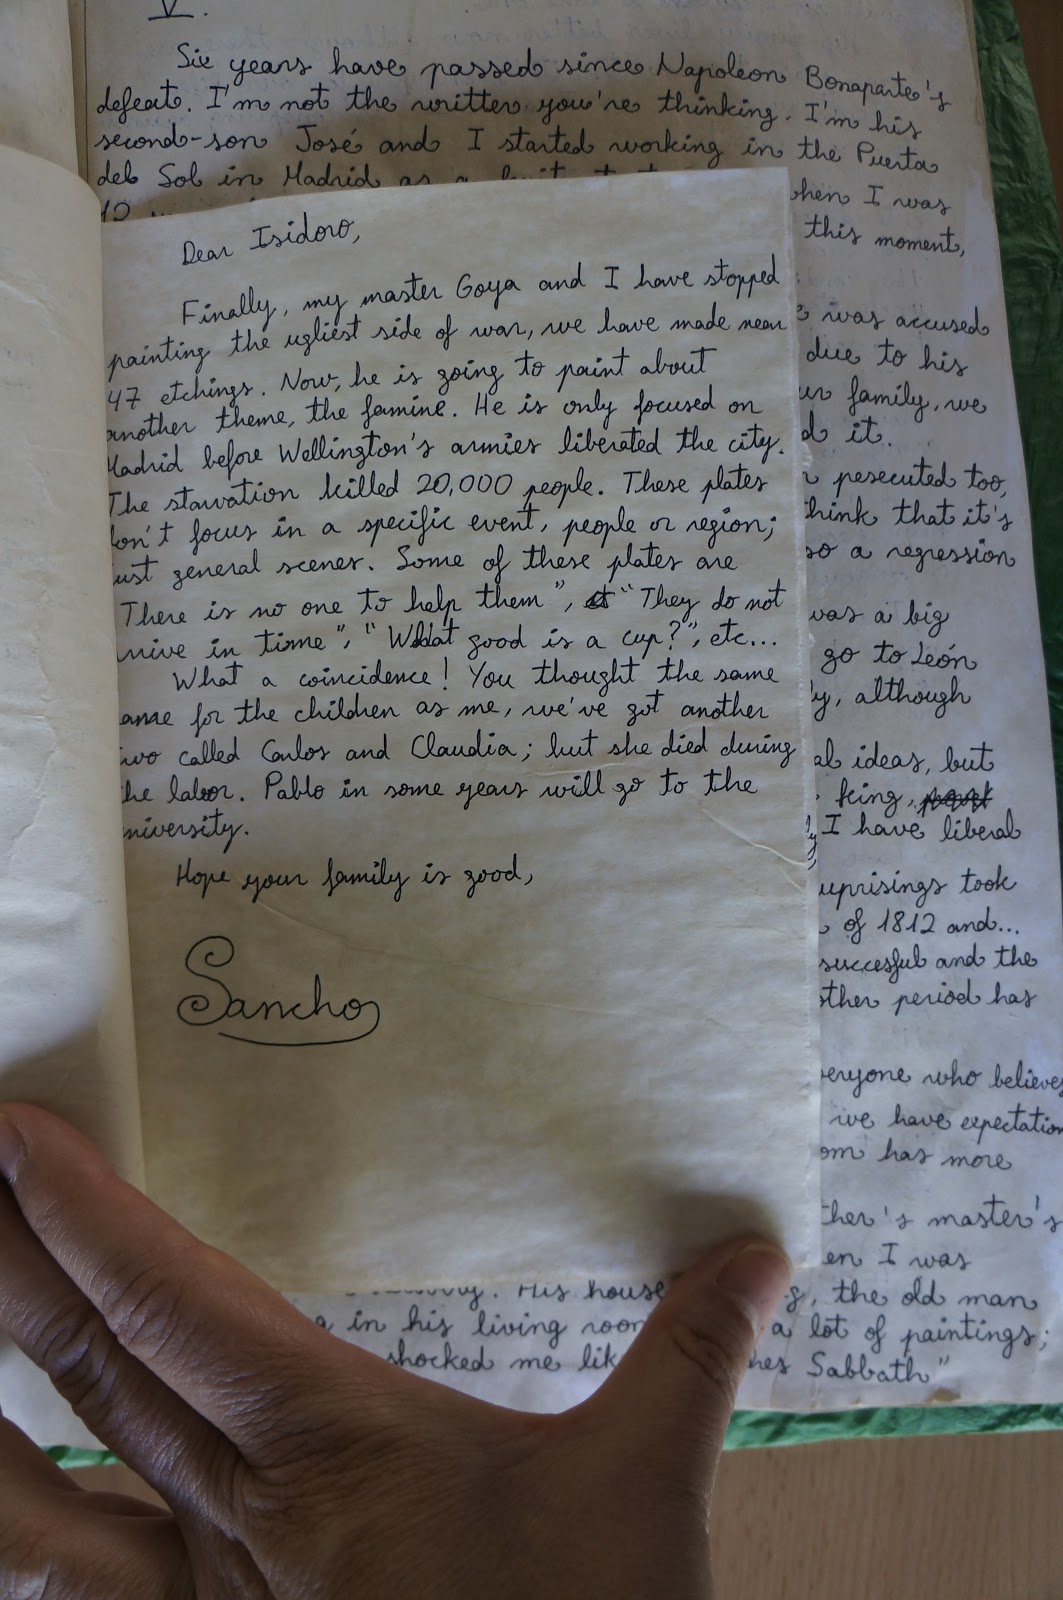 V.
Six years have passed since Napoleon Bonaparte's
defeat. I'm not the writter you're thinking. I'm his
second-son José and I started working in the Puerta
del Sol in Madrid as a
when I was
this moment,
Dear Isidoro,
Finally, my master Goya and I have stopped
painting the ugliest side of war, we have made near
47 etchings. Now, he is going to paint about
another theme, the famine. He is only focused on
Madrid before Wellington's armies liberated the city.
The starvation killed 20,000 people. These plates
don't focus in a specific event, people or region;
just general scenes. Some of these plates are
"There is no one to help them", "They do not
rrive in time", "What good is a cup?", etc...
What a coincidence! You thought the same
name for the children as me, we've got another
two called Carlos and Claudia; but she died during
the labor. Pablo in some years will go to the
university.
Hope your family is good,
Sancho
was accused
due to his
family, we
it.
pesecuted too,
think that it's
so a regression
was a big
go to León
although
ideas, but
king,
I have liberal
uprisings took
of 1812 and...
succesful and the
other period has
everyone who believes
we have expectation
has more
master's
I was
His house the old man
in his living room a lot of paintings;
shocked me Sabbath"